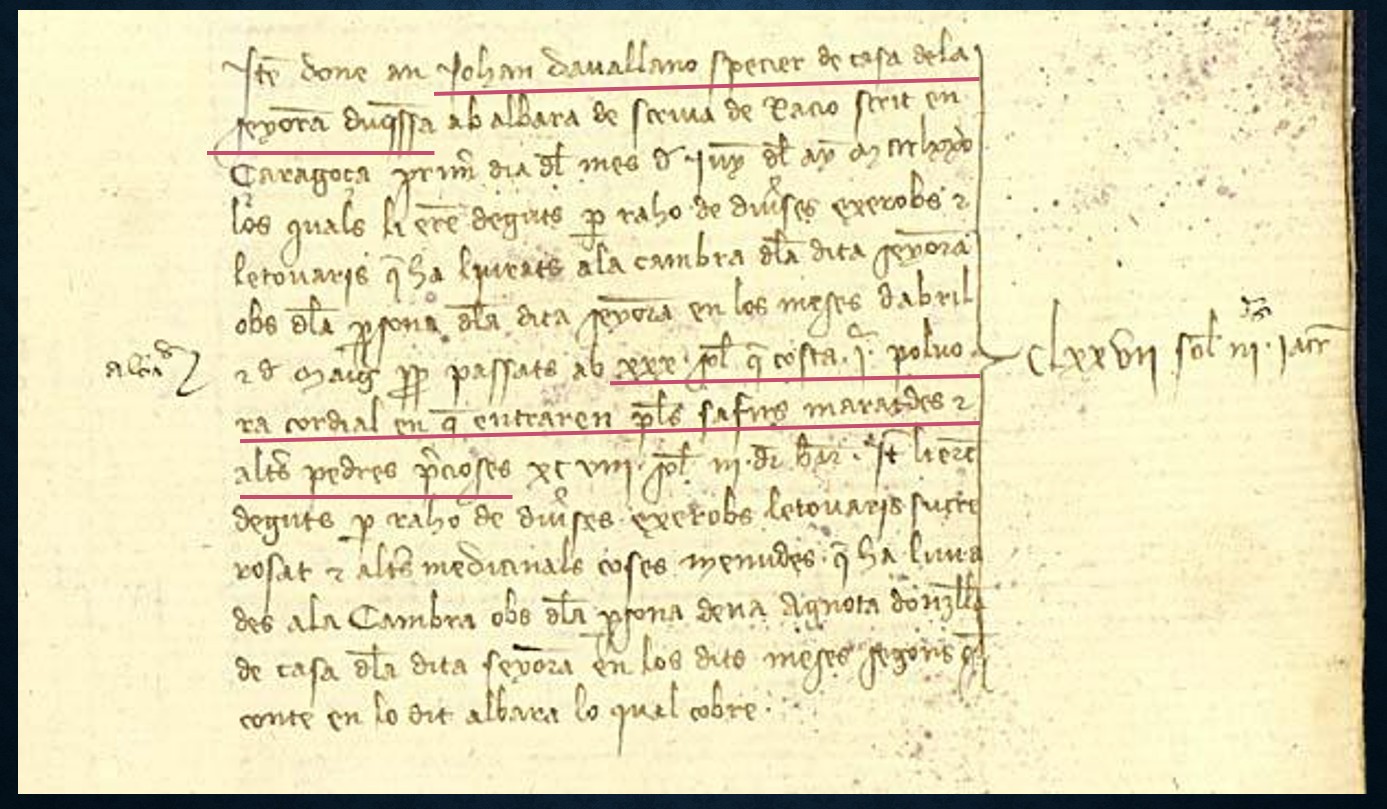 Itē done an Johan dauallano specier de casa dela
seyora duqssa ab albara de scriua de Racio scrit en
Caragoça prim dia dl mes d Juy dl ay M ccc lxxx
los quals li erē deguts p raho de diuses exerobs ⁊
letouaris q̄ ha liurats ala cambra dla dita seyora
obs dla psona dla dita seyora en los meses dabril
albara
⁊ d Maig pp passats ab xxx sol q̄ costa .Iª. poluo
clxxvii sol iii iacc
ra cordial en q̄ entraren pls safirs maratdes ⁊
alts pedres pcioses xc viii sol iii dr bar. It li erē
deguts p raho de diuses exerobs letouaris sucre
rosat ⁊ alts medicinals coses menudes q̄ ha liura
des ala Cambra obs dla psona dena Agnota donzlla
de casa dla dita seyora en los dits meses segons qs
conte en lo dit albara lo qual cobre.